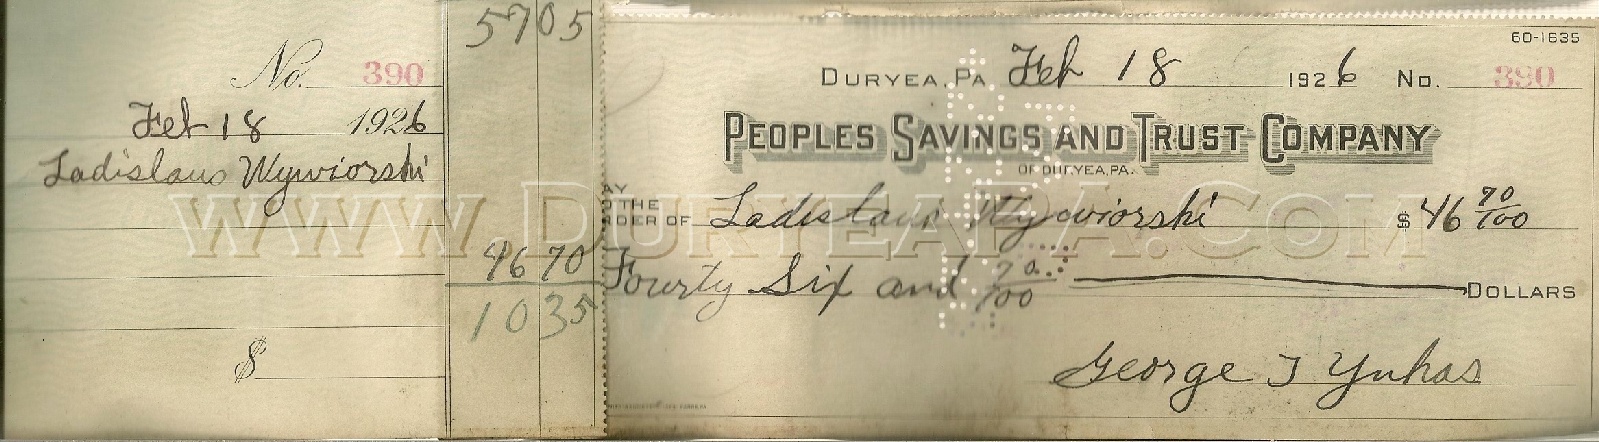 5705
No. 390
Feb 18 1926
Ladislaus Wywiorski
46 70
10 35
$
60-1635
DURYEA, PA. Feb 18 1926 No. 390
PEOPLES SAVINGS AND TRUST COMPANY
OF DURYEA, PA.
AY
O THE
RDER OF Ladislaus Wywiorski $ 46 70/100
Fourty Six and 70/100 DOLLARS
George J Yuhas
www.DuryeaPA.com